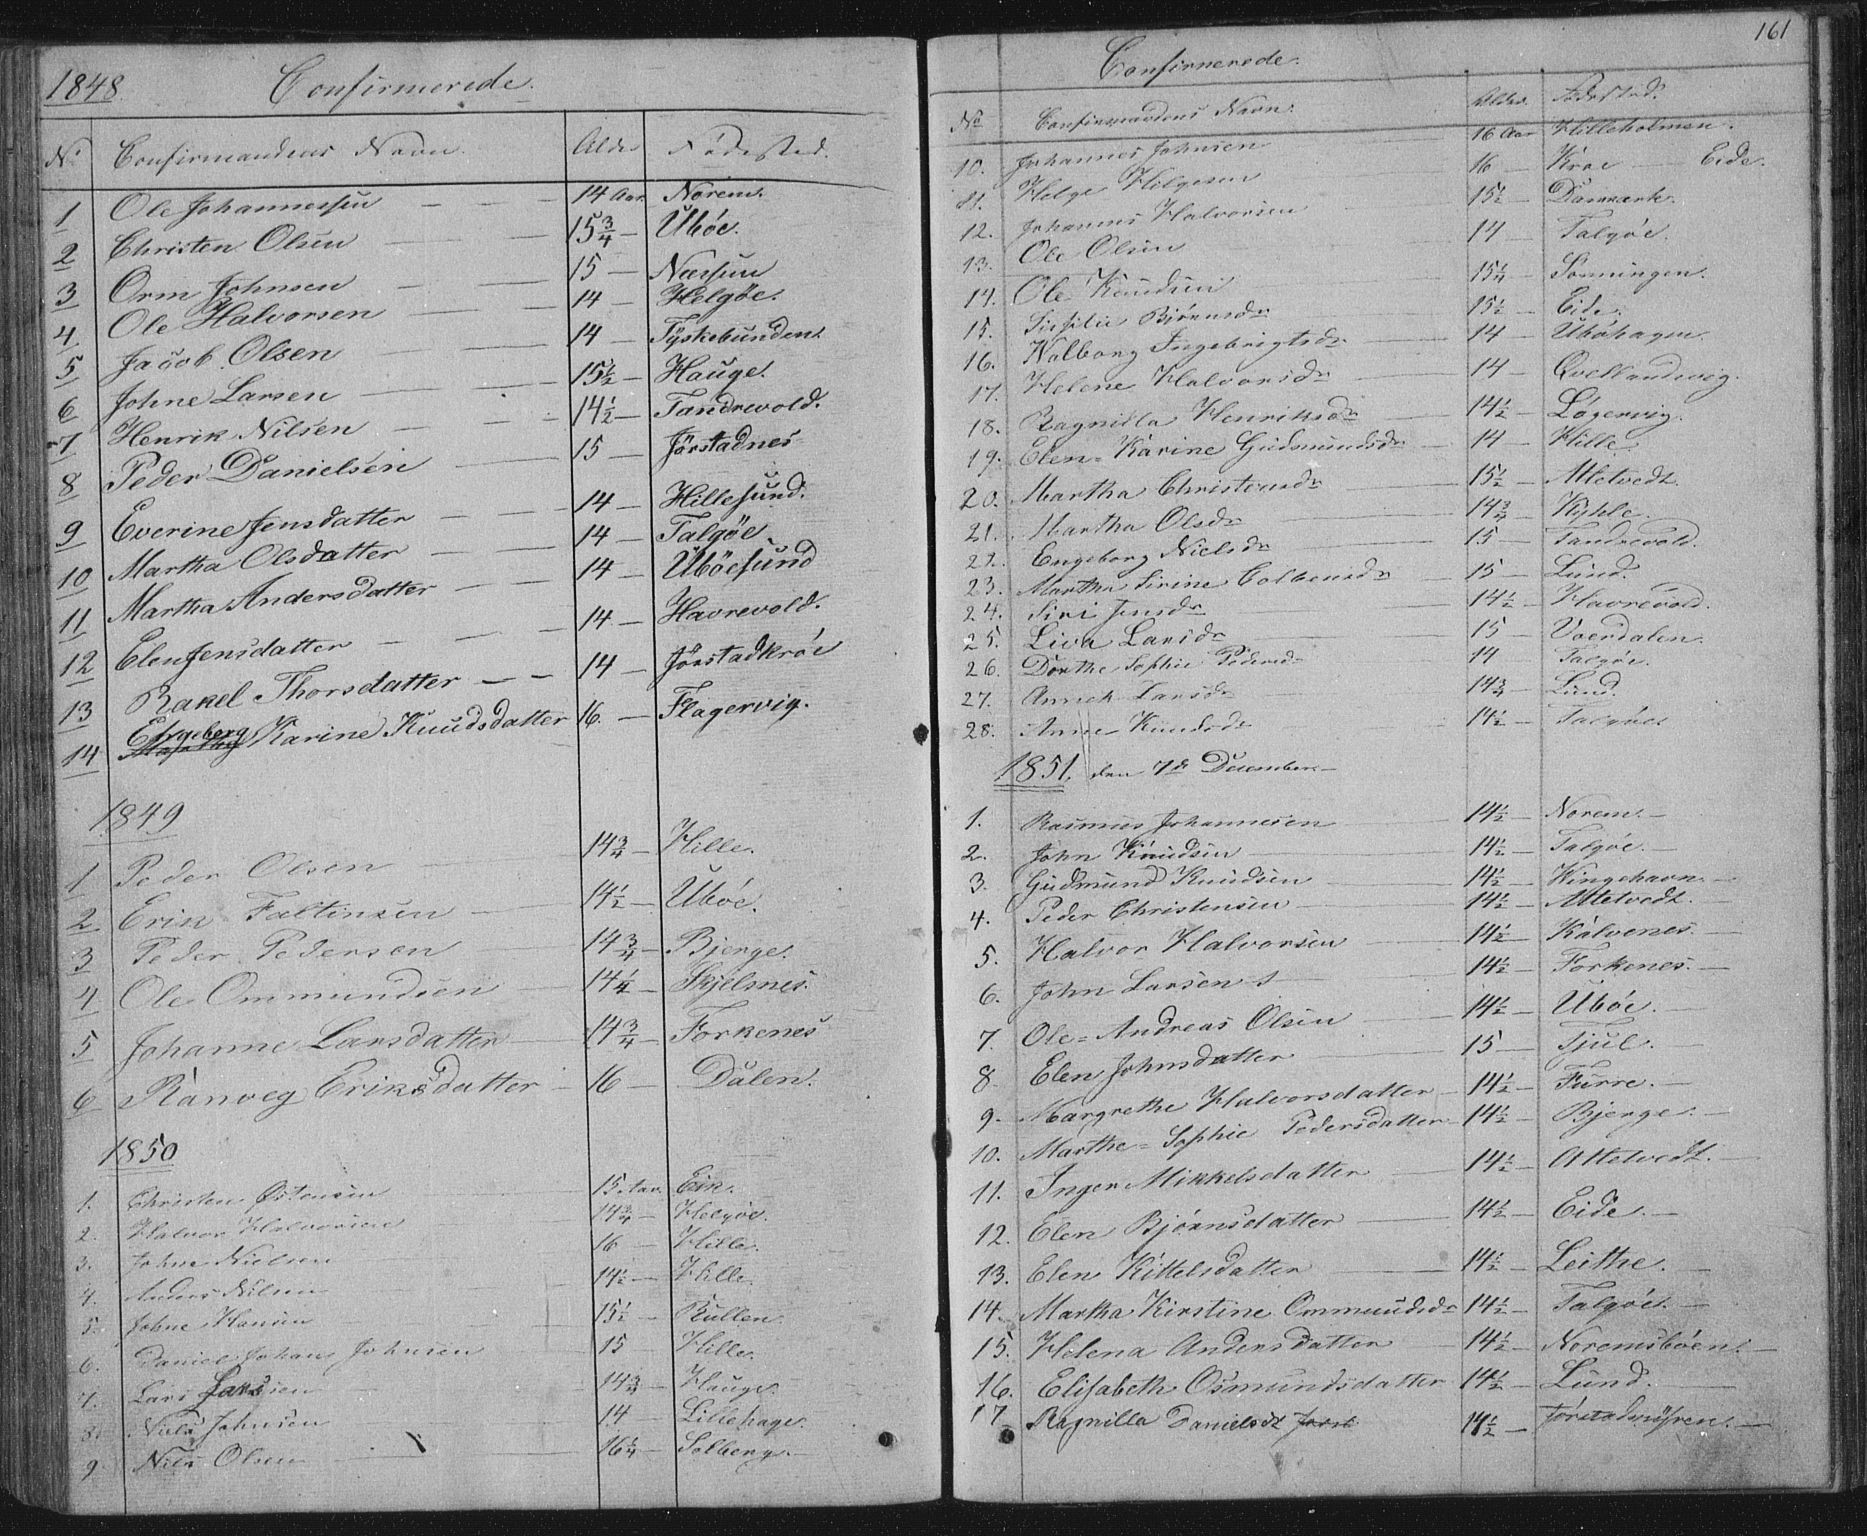 1848. Confirmerede.
No Confirmandens Navn. Alder Fødested.
1 Ole Johannessen 14 Aar. Norem.
2 Christen Olsen 15 3/4 Ubøe.
3 Orm Johnsen 15 Næssun
4 Ole Halvorsen 14 Helgøe.
5 Jacob Olsen 14 Tyskebunden.
6 Johne Larsen 15 1/2 Hauge.
7 Henrik Nilsen 14 1/2 Tandrevold.
8 Peder Danielsen 15 Jørstadnes
9 Everine Jensdatter 14 Hillesund.
10 Martha Olsdatter 14 Talgøe
11 Martha Andersdatter 14 Ubøesund
12 Elen Jensdatter 14 Havrevold.
13 Rakel Thorsdatter 14 Jørstadkrøe
14 Engeberg Karine Knudsdatter 16. Flagervig.
1849
1 Peder Olsen 14 3/4 Hille.
2 Erik Faltinsen 14 1/2 Ubøe.
3 Peder Pedersen 14 3/4 Bjerge.
4 Ole Ommundsen 14 1/4 Skjelsnes.
5 Johanne Larsdatter 14 3/4 Forkenes
6 Ranveg Eriksdatter 16 Dalen.
1850
1. Christen Østensen 15 Aar Eik.
2. Halvor Halvorsen 14 3/4 Helgøe.
3. Johne Nielsen 16 Hille.
4. Anders Nilsen 14 1/2 Hille.
5. Johne Hansen 15 1/2 Bullen.
6. Daniel Johan Johnsen 15 Hille.
7. Lars Larsen 14 3/4 Hauge.
8. Niels Johnsen 14 Lillehage.
9 Nils Olsen 16 1/4 Solberg.
161
Confirmerede.
No Confirmandens Navn. Alder. Fødested.
10. Johannes Johnsen 16 Aar Hilleholmen.
11. Helge Helgesen 16 Kroe Eide.
12. Johannes Halvorsen 15 1/2 Danmark.
13. Ole Olsen 14 Talgøe.
14. Ole Knudsen 15 1/4 Sonningen.
15. Sissilie Bjørnsdr 15 1/2 Eide.
16. Valborg Ingebrigtsdr 14 Ubøhagen.
17. Helene Halvorsdr 14 Qvellandsvig.
18. Ragnilla Henriksdr 14 1/2 Løgervig.
19. Elen-Karine Gudmundsdr 14 Hille.
20. Martha Christensdr 15 1/2 Alletvedt.
21. Martha Olsdr 14 3/4 Kyhle.
22. Engeborg Nielsdr 15 Tandrevold.
23. Martha Sirine Colbensdr 15 Lund.
24. Siri Jensdr 14 1/2 Havrevold.
25. Liva Larsdr 15 Voerdalen.
26. Dorthe Sophie Pedersd 14 Talgøe.
27. Annek Larsdr 14 3/4 Lund.
28. Anne Knudsdr 14 1/2 Talgøe
1851. den 7de December.
1. Rasmus Johannesen 14 1/2 Norem.
2. John Knudsen 14 1/2 Talgøe.
3. Gudmund Knudsen 14 1/2 Wingehavn.
4. Peder Christensen 14 1/2 Alletvedt.
5. Halvor Halvorsen 14 1/2 Kalvenes.
6. John Larsen 14 1/2 Forkenes.
7. Ole-Andreas Olsen 14 1/2 Ubøe.
8 Elen Johnsdatter 15 Tjul.
9. Margrethe Halvorsdatter 14 1/2 Furre.
10. Marthe-Sophie Pedersdatter 14 1/2 Bjerge.
11. Inger Mikkelsdatter 14 1/2 Alletvedt.
12. Elen Bjørnsdatter 14 1/2 Eide.
13. Elen Kittelsdatter 14 1/2 Leithe.
14. Martha Kirstine Ommundsdr 14 1/2 Talgøe.
15. Helena Andersdatter 14 1/2 Noremsbøen.
16. Elisabeth Osmundsdatter 14 1/2 Lund.
17 Ragnilla Danielsdt 14 1/2 Jørstadmyren.